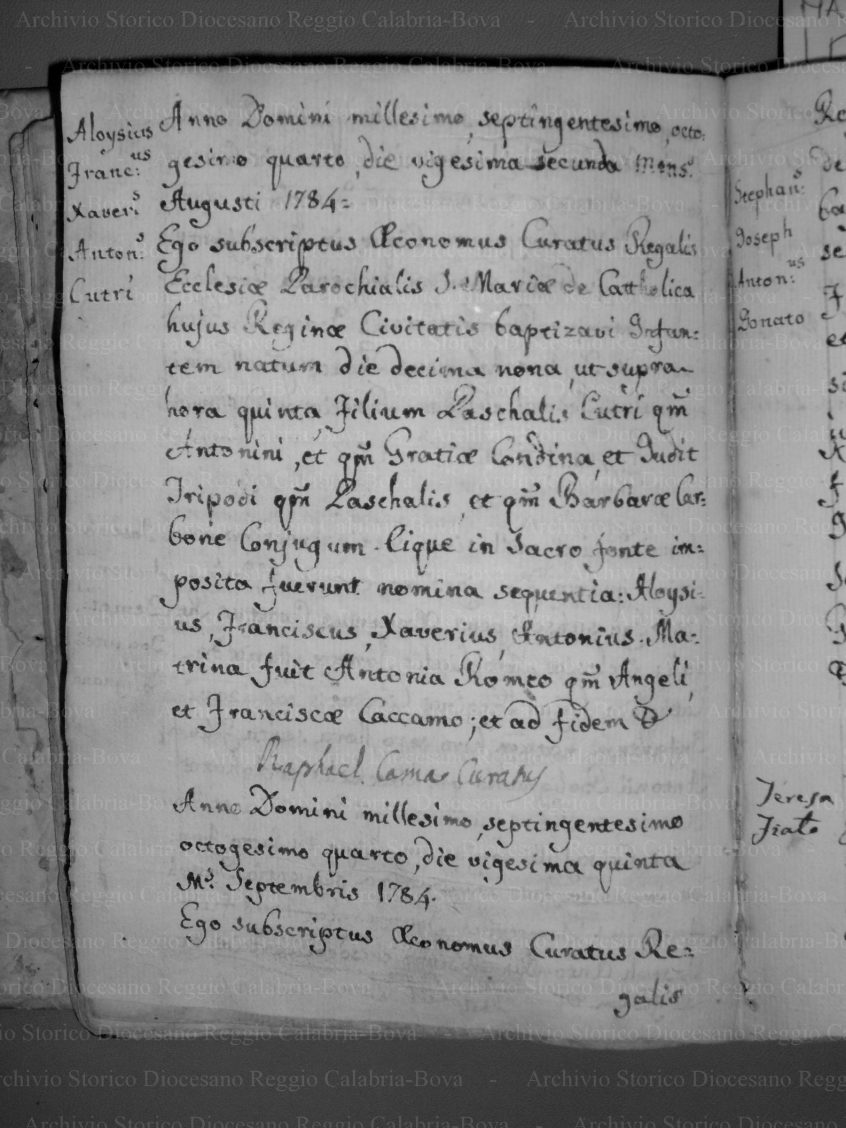 Aloysius
Franc:us
Xaveri:s
Anton:s
Cutrì
Anno Domini millesimo, septingentesimo, octo:
gesimo quarto, die vigesima secunda Mens:s
Augusti 1784=
Ego subscriptus Œconomus Curatus Regalis
Ecclesiæ Parochialis S. Mariæ de Cattholica
hujus Reginæ Civitatis baptizavi Infan:
tem natum die decima nona, ut supra
hora quinta, Filium Paschalis Cutrì qm̃
Antonini, et qm̃ Gratiæ Condina, et Judit
Tripodi qm̃ Paschalis, et qm̃ Barbaræ Car:
bone Conjugum. Cique in Sacro fonte im:
posita fuerunt nomina sequentia: Aloysi:
us, Franciscus, Xaverius, Antonius. Ma:
trina fuit Antonia Romeo qm̃ Angeli,
et Franciscæ Caccamo; et ad fidem
Raphael Cama Curatus
Anno Domini millesimo, septingentesimo
octogesimo quarto, die vigesima quinta
M.s Septembris 1784.
Ego subscriptus Œconomus Curatus Re:
galis
Stephan:s
Joseph
Anton:us
Donato
Teresa
Archivio Storico Diocesano Reggio Calabria-Bova